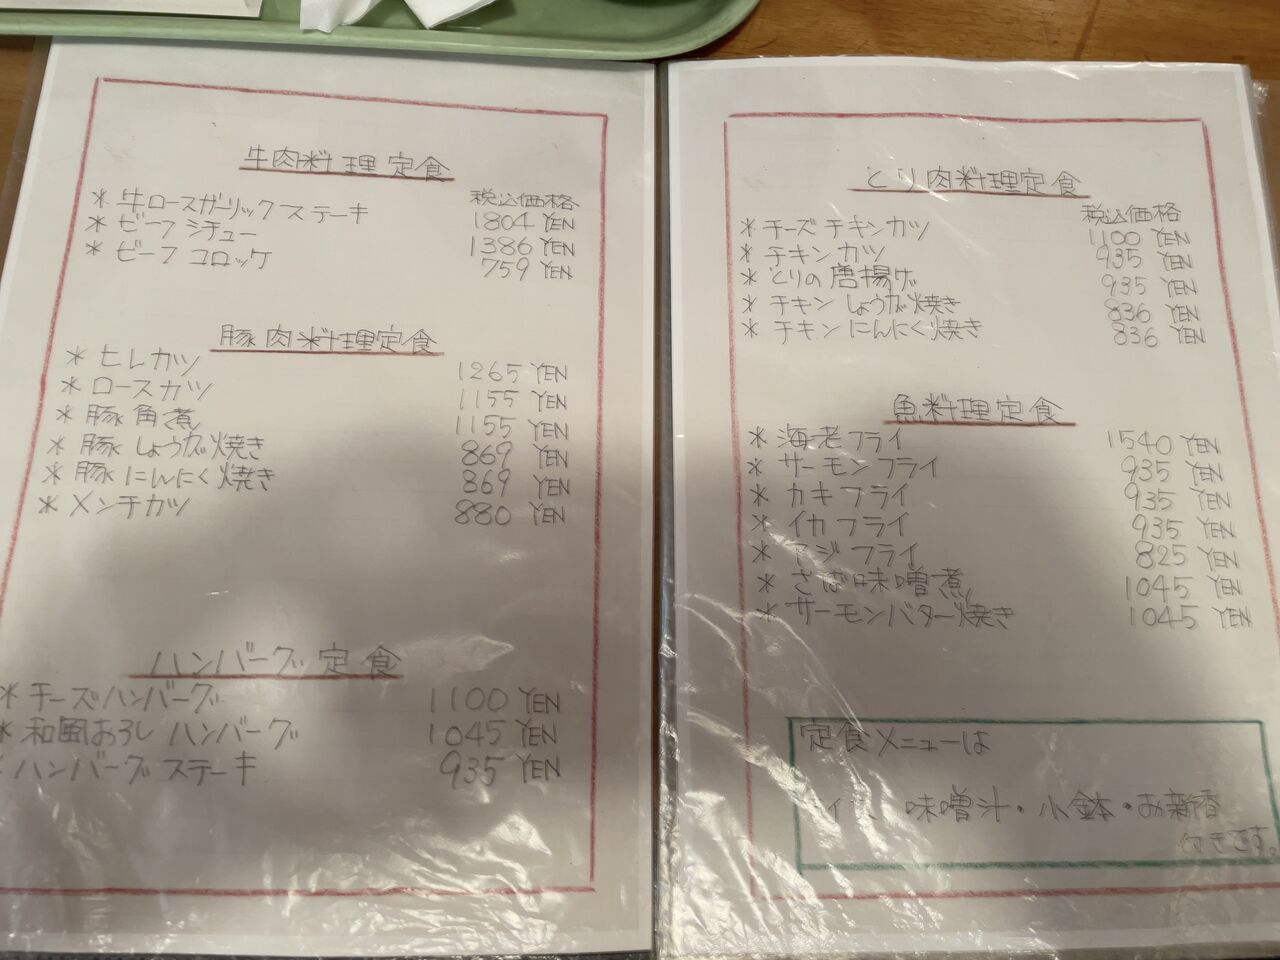 牛肉料理定食
税込価格
* 牛ロースガーリックステーキ 1804 YEN
* ビーフシチュー 1386 YEN
* ビーフコロッケ 759 YEN
豚肉料理定食
* ヒレカツ 1265 YEN
* ロースカツ 1155 YEN
* 豚角煮 1155 YEN
* 豚しょうが焼き 869 YEN
* 豚にんにく焼き 869 YEN
* メンチカツ 880 YEN
ハンバーグ定食
* チーズハンバーグ 1100 YEN
* 和風おろしハンバーグ 1045 YEN
* ハンバーグステーキ 935 YEN
とり肉料理定食
税込価格
* チーズチキンカツ 1100 YEN
* チキンカツ 935 YEN
* とりの唐揚げ 935 YEN
* チキンしょうが焼き 836 YEN
* チキンにんにく焼き 836 YEN
魚料理定食
* 海老フライ 1540 YEN
* サーモンフライ 935 YEN
* カキフライ 935 YEN
* イカフライ 935 YEN
* アジフライ 825 YEN
* さば味噌煮 1045 YEN
* サーモンバター焼き 1045 YEN
定食メニューは
味噌汁・小鉢・お新香
付きです。